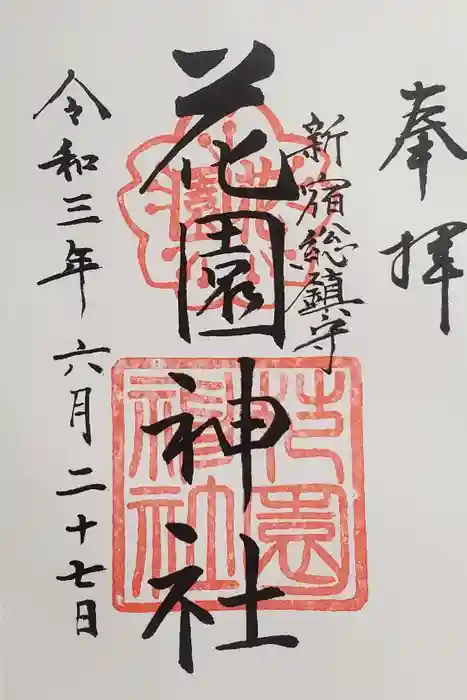 奉拝
新宿総鎮守
花園神社
令和三年六月二十七日
花園
神社
花園